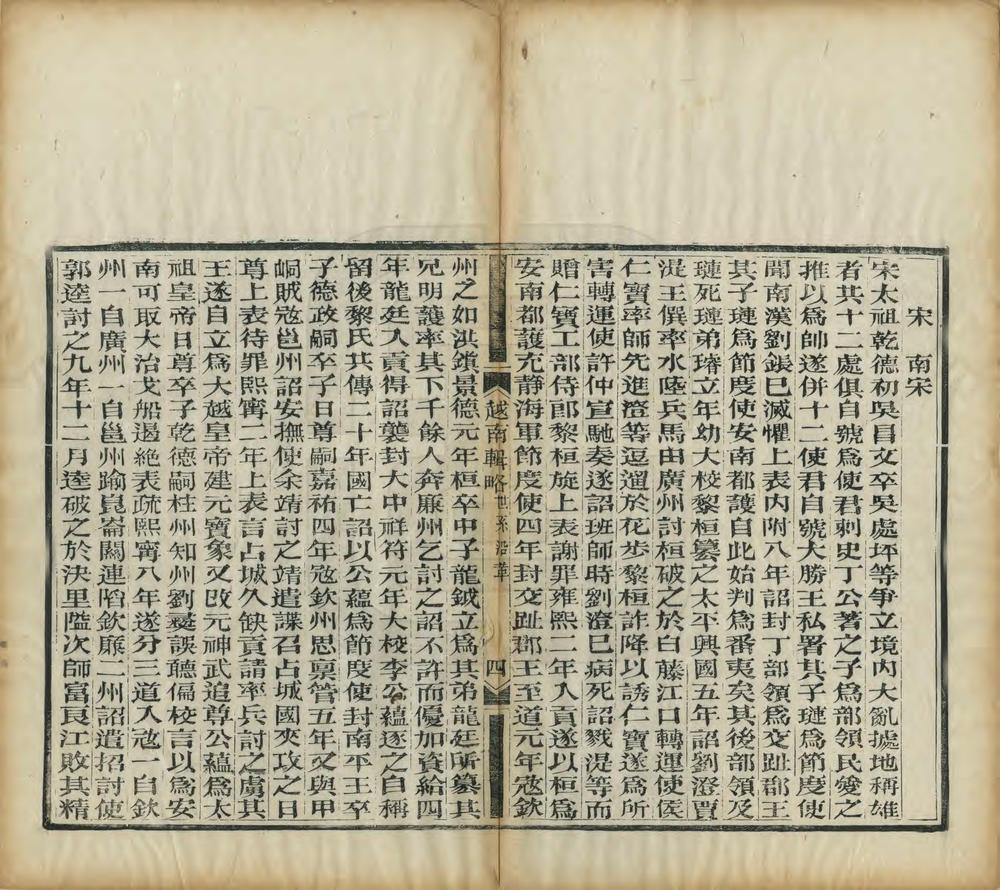 宋　南宋
宋太祖乾德初吳昌文卒吳處坪等爭立境內大亂據地稱雄
者其十二處俱自號為使君刺史丁公著之子為部領民愛之
推以為帥遂併十二使君自號大勝王私署其子璉為節度使
聞南漢劉鋹巳滅懼上表內附八年詔封丁部領為交趾郡王
其子璉為節度使安南都護自此始判為番夷矣其後部領及
璉死璉弟璿立年幼大校黎桓篡之太平興國五年詔劉澄賈
湜王僎率水陸兵馬由廣州討桓破之於白藤江口轉運使侯
仁寶率師先進澄等逗遛於花步黎桓詐降以誘仁寶遂為所
害轉運使許仲宣馳奏遂詔班師時劉澄巳病死詔戮湜等而
贈仁寶工部侍郎黎桓旋上表謝罪雍熙二年入貢遂以桓為
安南都護充静海軍節度使四年封交趾郡王至道元年寇欽
越南輯略 世系沿革 四
州之如洪鎮景德元年桓卒中子龍鉞立為其弟龍廷所篡其
兄明護率其下千餘人奔廉州乞討之詔不許而優加資給四
年龍廷入貢得詔襲封大中祥符元年大校李公蘊逐之自稱
留後黎氏共傳二十年國亡詔以公蘊為節度使封南平王卒
子德政嗣卒子日尊嗣嘉祐四年寇欽州思稟管五年又與甲
峒賊寇邕州詔安撫使余靖討之靖遣諜召占城國夾攻之日
尊上表待罪熙甯二年上表言占城久缺貢請率兵討之虜其
王遂自立為大越皇帝建元寶象又改元神武追尊公蘊為太
祖皇帝日尊卒子乾德嗣桂州知州劉彝誤聽偏校言以為安
南可取大治戈船遏絶表疏熙甯八年遂分三道入寇一自欽
州一自廣州一自邕州踰崑崙關連陷欽廉二州詔遣招討使
郭逵討之九年十二月逵破之於決里隘次師富良江敗其精